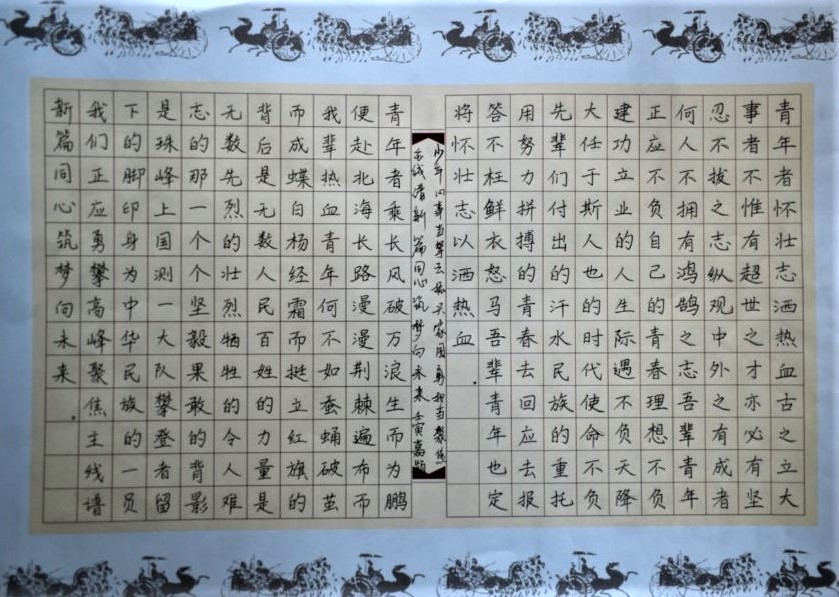 青年者怀壮志洒热血古之立大
事者不惟有超世之才亦必有坚
忍不拔之志纵观中外之有成者
何人不拥有鸿鹄之志吾辈青年
正应不负自己的青春理想不负
建功立业的人生际遇不负天降
大任于斯人也的时代使命不负
先辈们付出的汗水民族的重托
用努力拼搏的青春去回应去报
答不枉鲜衣怒马吾辈青年也定
将怀壮志以洒热血.
少年心事当拏云家国勇担当聚焦
主线谱新篇同心筑梦向未来 壬寅嘉
青年者乘长风破万浪生而为鹏
便赴北海长路漫漫荆棘遍布而
我辈热血青年何不如蚕蛹破茧
而成蝶白杨经霜而挺立红旗的
背后是无数人民百姓的力量是
无数先烈的壮烈牺牲的令人难
志的那一个个坚毅果敢的背影
是珠峰上国测一大队攀登者留
下的脚印身为中华民族的一员
我们正应勇攀高峰聚焦主线谱
新篇同心筑梦向未来.